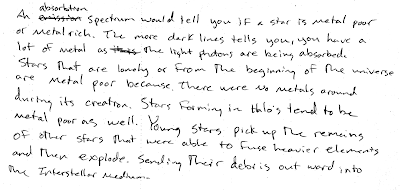 absorbtion
An emission Spectrum would tell you if a star is metal poor
or metal rich. The more dark lines tells you, you have a
lot of metal as this the light photons are being absorbed.
Stars that are lonely or from the beginning of the universe
are metal poor because there were no metals around
during its creation. Stars forming in Halo's tend to be
metal poor as well. Young stars pick up the remains
of other stars that were able to fuse heavier elements
and then explode. Sending their debris out word into
the Interstellar Medium.